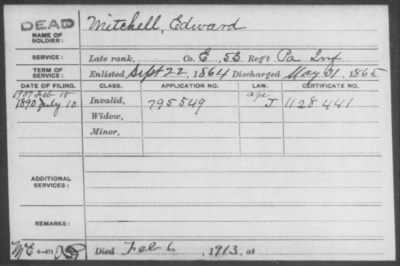 DEAD Mitchell, Edward
NAME OF SOLDIER:
SERVICE: Late rank, Co. E, 53 Reg't Pa Inf
TERM OF SERVICE: Enlisted Sept 22, 1864 Discharged May 31, 1865
DATE OF FILING. CLASS. APPLICATION NO. LAW. CERTIFICATE NO.
1907 Feb 15 age
1890 July 10 Invalid, 795549 J 1128441
Widow,
Minor,
ADDITIONAL SERVICES:
REMARKS:
Died Feb 6, 1913, at